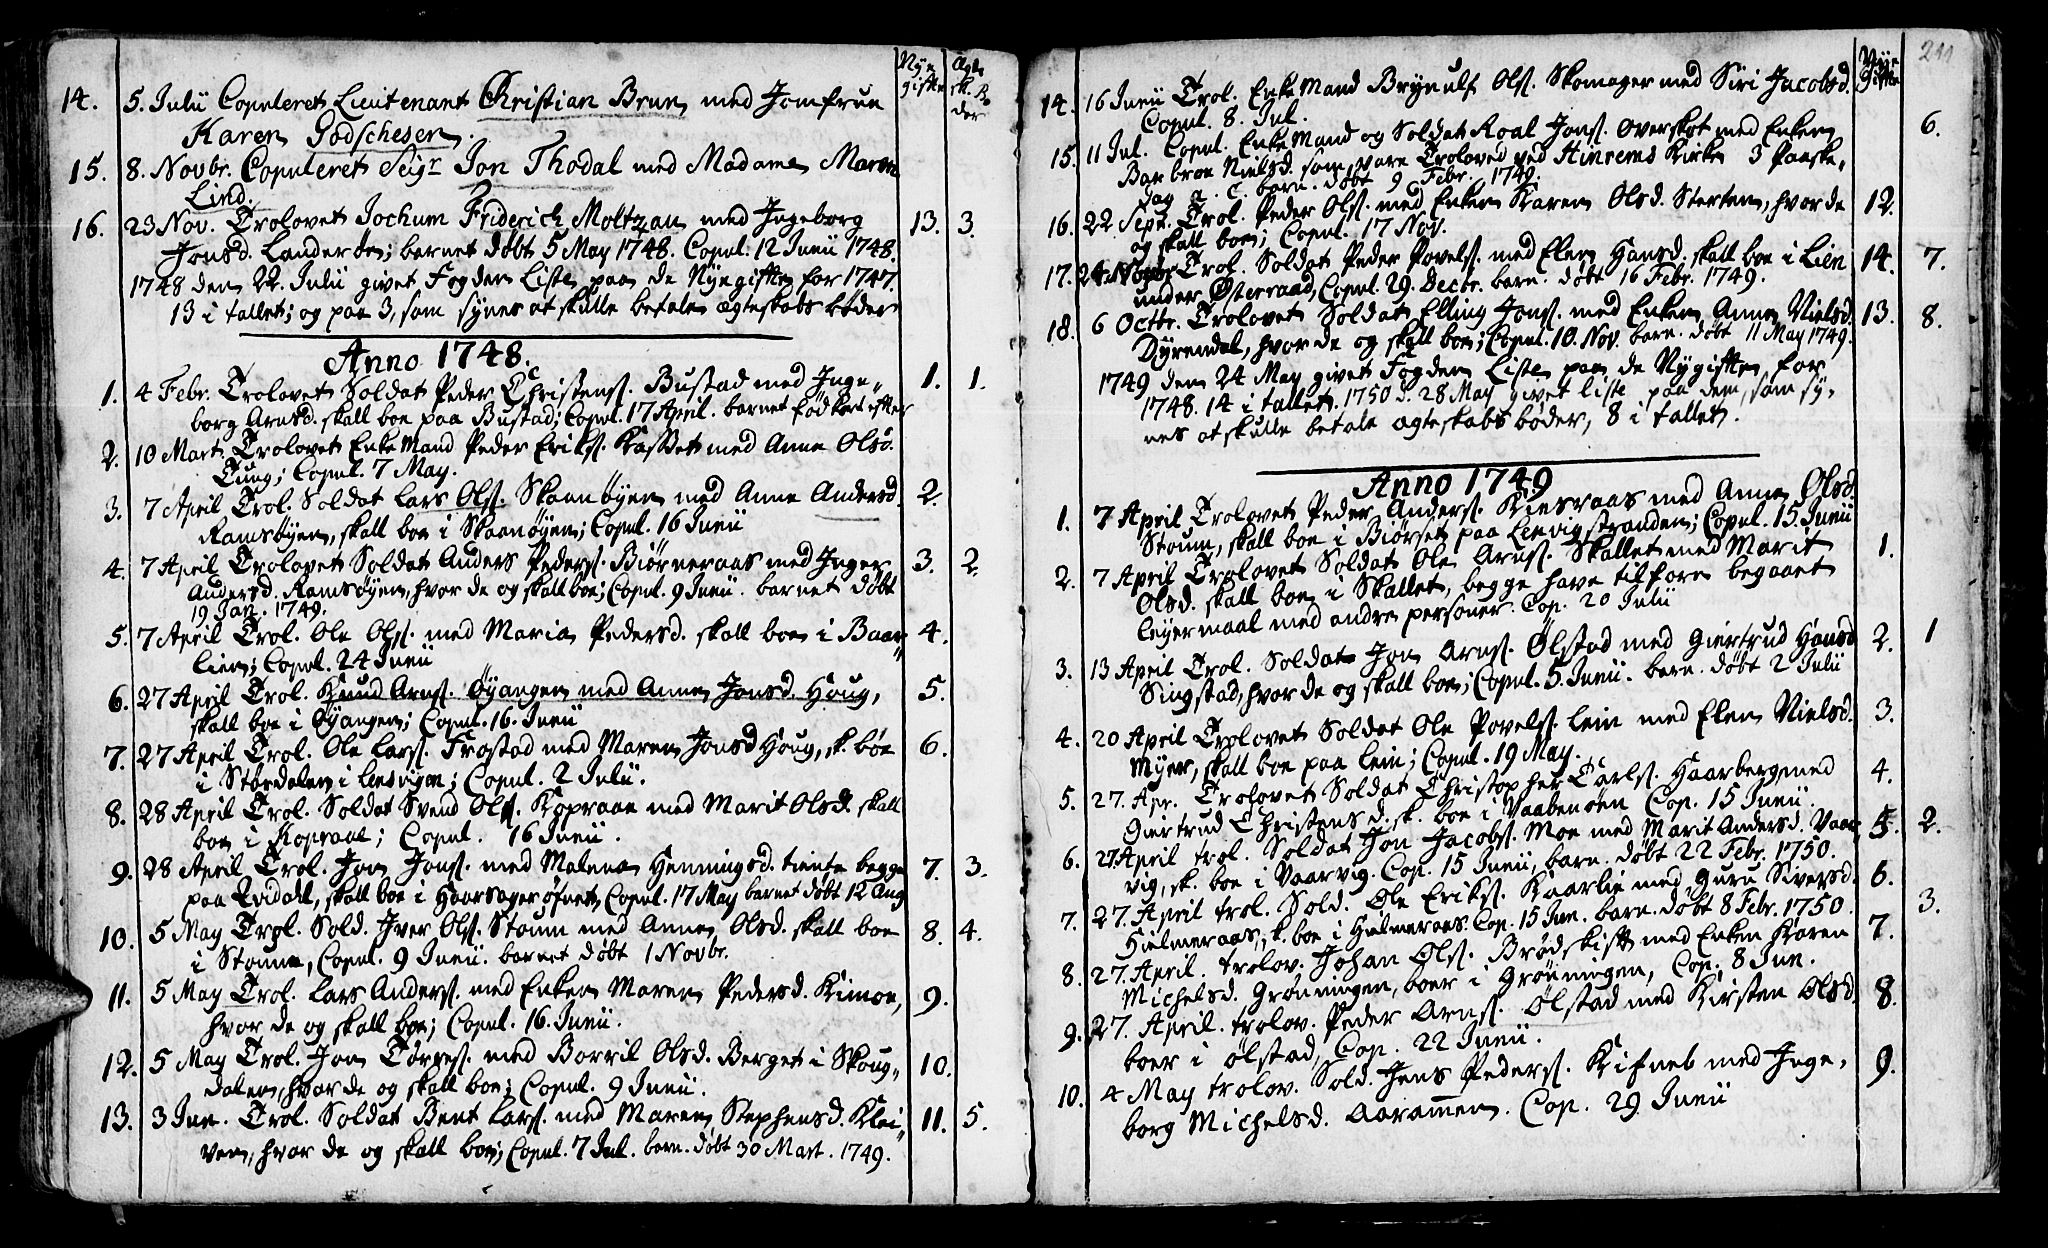 Nÿe gifte
Ægte sk. Bøder
14. 5. Julii Copuleret Lieutenant Christian Brun med Jomfrue
Karen Godschesen.
15. 8. Novbr. Copuleret Seigr Jon Thodal med Madame Maren
Lind.
16. 23 Nov. Trolovet Jochum Friderich Moltzau med Ingeborg 13. 3.
Jonsd. Landerøen; barnet døbt 5 May 1748. Copul. 12 Junii 1748.
1748 den 22. Julii givet Fogden Liste paa de Nÿegifte for 1747.
13 i tallet; og paa 3, som synes at skulle betale ægteskabs bøder
Anno 1748.
1. 4 Febr. Trolovet Soldat Peder Christens. Bustad med Inge= 1. 1.
borg Arnsd. skall boe paa Bustad; Copul. 17 April. barnet fød kort efter
2. 10 Mart. Trolovet Enke Mand Peder Eriks. Kasset med Anne Olsd.
Tung; Copul. 7 May.
3. 7 April Trol. Soldat Lars Ols. Skaanøyen med Anne Andersd. 2.
Ramsøyen, skall boe i Skaanøyen; Copul. 16 Junii
4. 7 April Trolovet Soldat Anders Peders. Biørneraas med Inger 3. 2.
Andersd. Ramsøyen, hvor de og skall boe; Copul. 9 Junii. barnet døbt
19 Jan. 1749.
5. 7 April Trol. Ole Ols. med Maria Pedersd. skall boe i Baar= 4.
lien; Copul. 24 Junii
6. 27 April Trol. Knud Arns. Øyangen med Anne Jonsd. Houg, 5.
skall boe i Øyangen; Copul. 16. Junii
7. 27 April Trol. Ole Lars. Frostad med Maren Jonsd Houg, sk. boe 6.
i Stordalen i Lensvigen; Copul. 2 Julii.
8. 28 April Trol. Soldat Svend Ols. Kopraae med Marit Olsd. skall
boe i Kopraae; Copul. 16 Junii.
9. 28 April Trol. Jon Jons. med Malena Henningsd. tiente begge 7. 3.
paa Uvdahl, skall boe i Haarsagerøfnet, Copul. 17 May barnet døbt 12 Aug
10. 5 May Trol. Sold. Iver Ols. Stoum med Anne Olsd. skall boe 8. 4.
i Stoune, Copul. 9 Junii. barnet døbt 1 Novbr.
11. 5 May Trol. Lars Anders. med Enken Maren Pedersd. Kimoe, 9.
hvor de og skall boe; Copul. 16. Junii.
12. 5 May Trol. Jon Tørres. med Borril Olsd. Berget i Skoug= 10.
dalen, hvor de og skall boe; Copul. 9 Junii.
13. 3 Jun. Trol. Soldat Bent Lars. med Maren Stephensd. Klei= 11. 5.
ven, hvor de og skall boe; Copul. 7 Jul. barn. døbt 30 Mart. 1749.
211
Nÿe Gifte
14. 16 Junii Trol. Enke Mand Brynulf Ols. Skomager med Siri Jacobsd.
Copul. 8. Jul.
15. 11 Jul. Copul. Enke Mand og Soldat Roal Jons. Overskot med Enken 6.
Barbroe Nielsd. som vare Troloved ved Hinrems Kirke 3 Paaske=
dag a. c. barn. døbt 9 Febr. 1749.
16. 22 Sept. Trol. Peder Ols. med Enken Karen Olsd. Sterten, hvor de 12.
og skall boe; Copul. 17 Nov.
17. 24 Novbr Trol. Soldat Peder Povels. med Elen Hansd. skall boe i Lien 14. 7.
under Østeraad, Copul. 29. Decbr. barn. døbt 16 Febr. 1749.
18. 6 Octbr. Trolovet Soldat Elling Jons. med Enken Anne Nielsd. 13. 8.
Dyrendal, hvor de og skall boe; Copul. 10. Nov. barn. døbt 11 May 1749.
1749 den 24 May givet Fogden Liste paa de Nygifte for
1748. 14 i tallet. 1750 d. 28 May givet liste paa dem, som sy=
nes at skulle betale ægteskabs bøder, 8 i tallet.
Anno 1749
1. 7 April Trolovet Peder Anders. Kiesraas med Anne Olsd.
Stoum, skall boe i Biørset paa Lenvigstranden; Copul. 15. Junii
2. 7 April Trolovet Soldat Ole Arns. Skallet med Marit 1.
Olsd. skall boe i Skallet, begge have tilforn begaaet
leyermaal med andre personer. Cop. 20 Julii
3. 13 April Trol. Soldat Jon Arns. Ølstad med Giertrud Hansd 2. 1
Singstad, hvor de og skall boe; Copul. 5. Junii. barn. døbt 2 Julii
4. 20 April Trolovet Soldat Ole Povels. Lein med Elen Nielsd. 3.
Myer, skall boe paa Lein; Copul. 19 May.
5. 27. Apr. Trolovet Soldat Christopher Carls. Haarberg med 4.
Giertrud Christensd. sk. boe i Vaabenøen Cop. 15 Junii.
6. 27 April trol. Soldat Jon Jacobs. Moe med Marit Andersd. Vaar= 5. 2.
vig, sk. boe i Vaarvig. Cop. 15 Junii, barn. døbt 22 Febr. 1750.
7. 27. April trol. Sold. Ole Eriks. Kaarlie med Guru Siversd. 6. 3.
Hielmeraas, sk. boe i Hielmeraas. Cop. 15 Jun. barn. døbt 8 Febr. 1750.
8. 27. April. trolov. Johan Ols. Brødskift med Enken Karen 7.
Michelsd. Grønningen, boer i Grønningen, Cop. 8 Jun.
9. 27. April. trolov. Peder Arns. Ølstad med Kirsten Olsd. 8.
boer i Ølstad, Cop. 22 Junii.
10. 4 May trolov. Sold. Jens Peders. Kifneb med Inge= 9.
borg Michelsd. Aarammen. Cop. 29 Junii